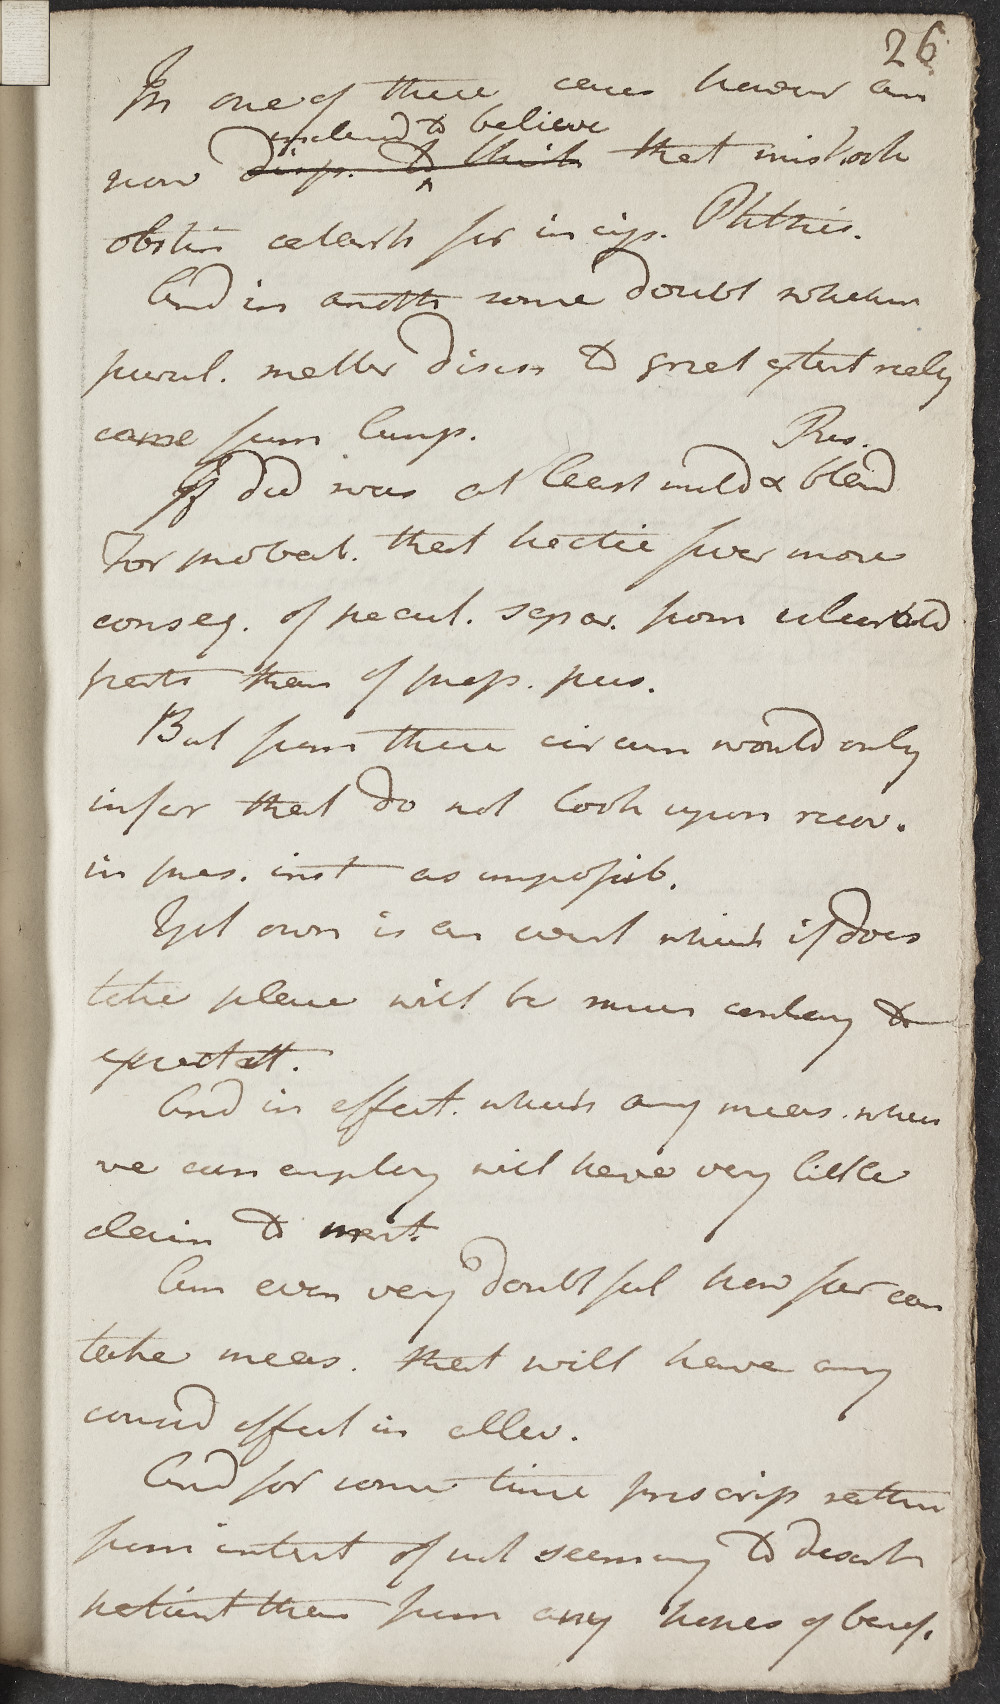 26
In one of these cases however am
inclined to believe
now disp. to think that mistook
obstin catarrh for incip. Phthis.
And in anoth some doubt whether
purul. matter disch to great extent realy
came from lungs. Pus.
If did was at least mild & bland
For probab. that hectic fever more
conseq. of pecul. separ. from ulcerated
parts than of prop. pus.
But from these circum would only
infer that do not look upon recov.
in pres. inst as impossib.
Yet own is an event which if does
take place will be much contrary to
expectatt.
And in effect. which any meas. when
we can employ will have very little
claim to merit.
Am even very doubtful how far can
take meas. that will have any
consid effect in allev.
And for some time prescrip rather
from intent of not seeming to desert
patient than from any hopes of benef.